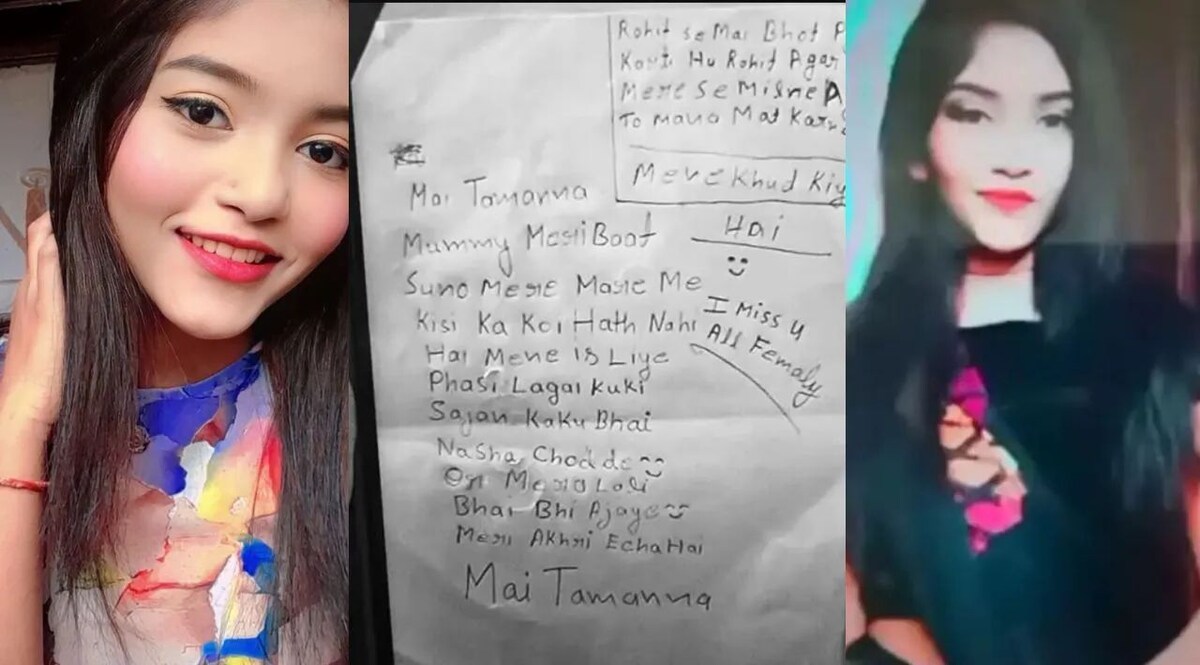 Rohit se Mai Bhot P
Karti Hu Rohit Agar
Mere Se Milne A
To mana Mat Karn
Mere Khud Kiy
Hai
I Miss u
All Femaly
Mai Tamanna
Mummy Meri Baat
Suno Mere Marne Me
Kisi Ka Koi Hath Nahi
Hai Mene Is Liye
Phasi Lagai Kuki
Sajan Kaku Bhai
Nasha Chod de
Or Mera Lali
Bhai Bhi Ajaye
Meri Akhri Echa Hai
Mai Tamanna